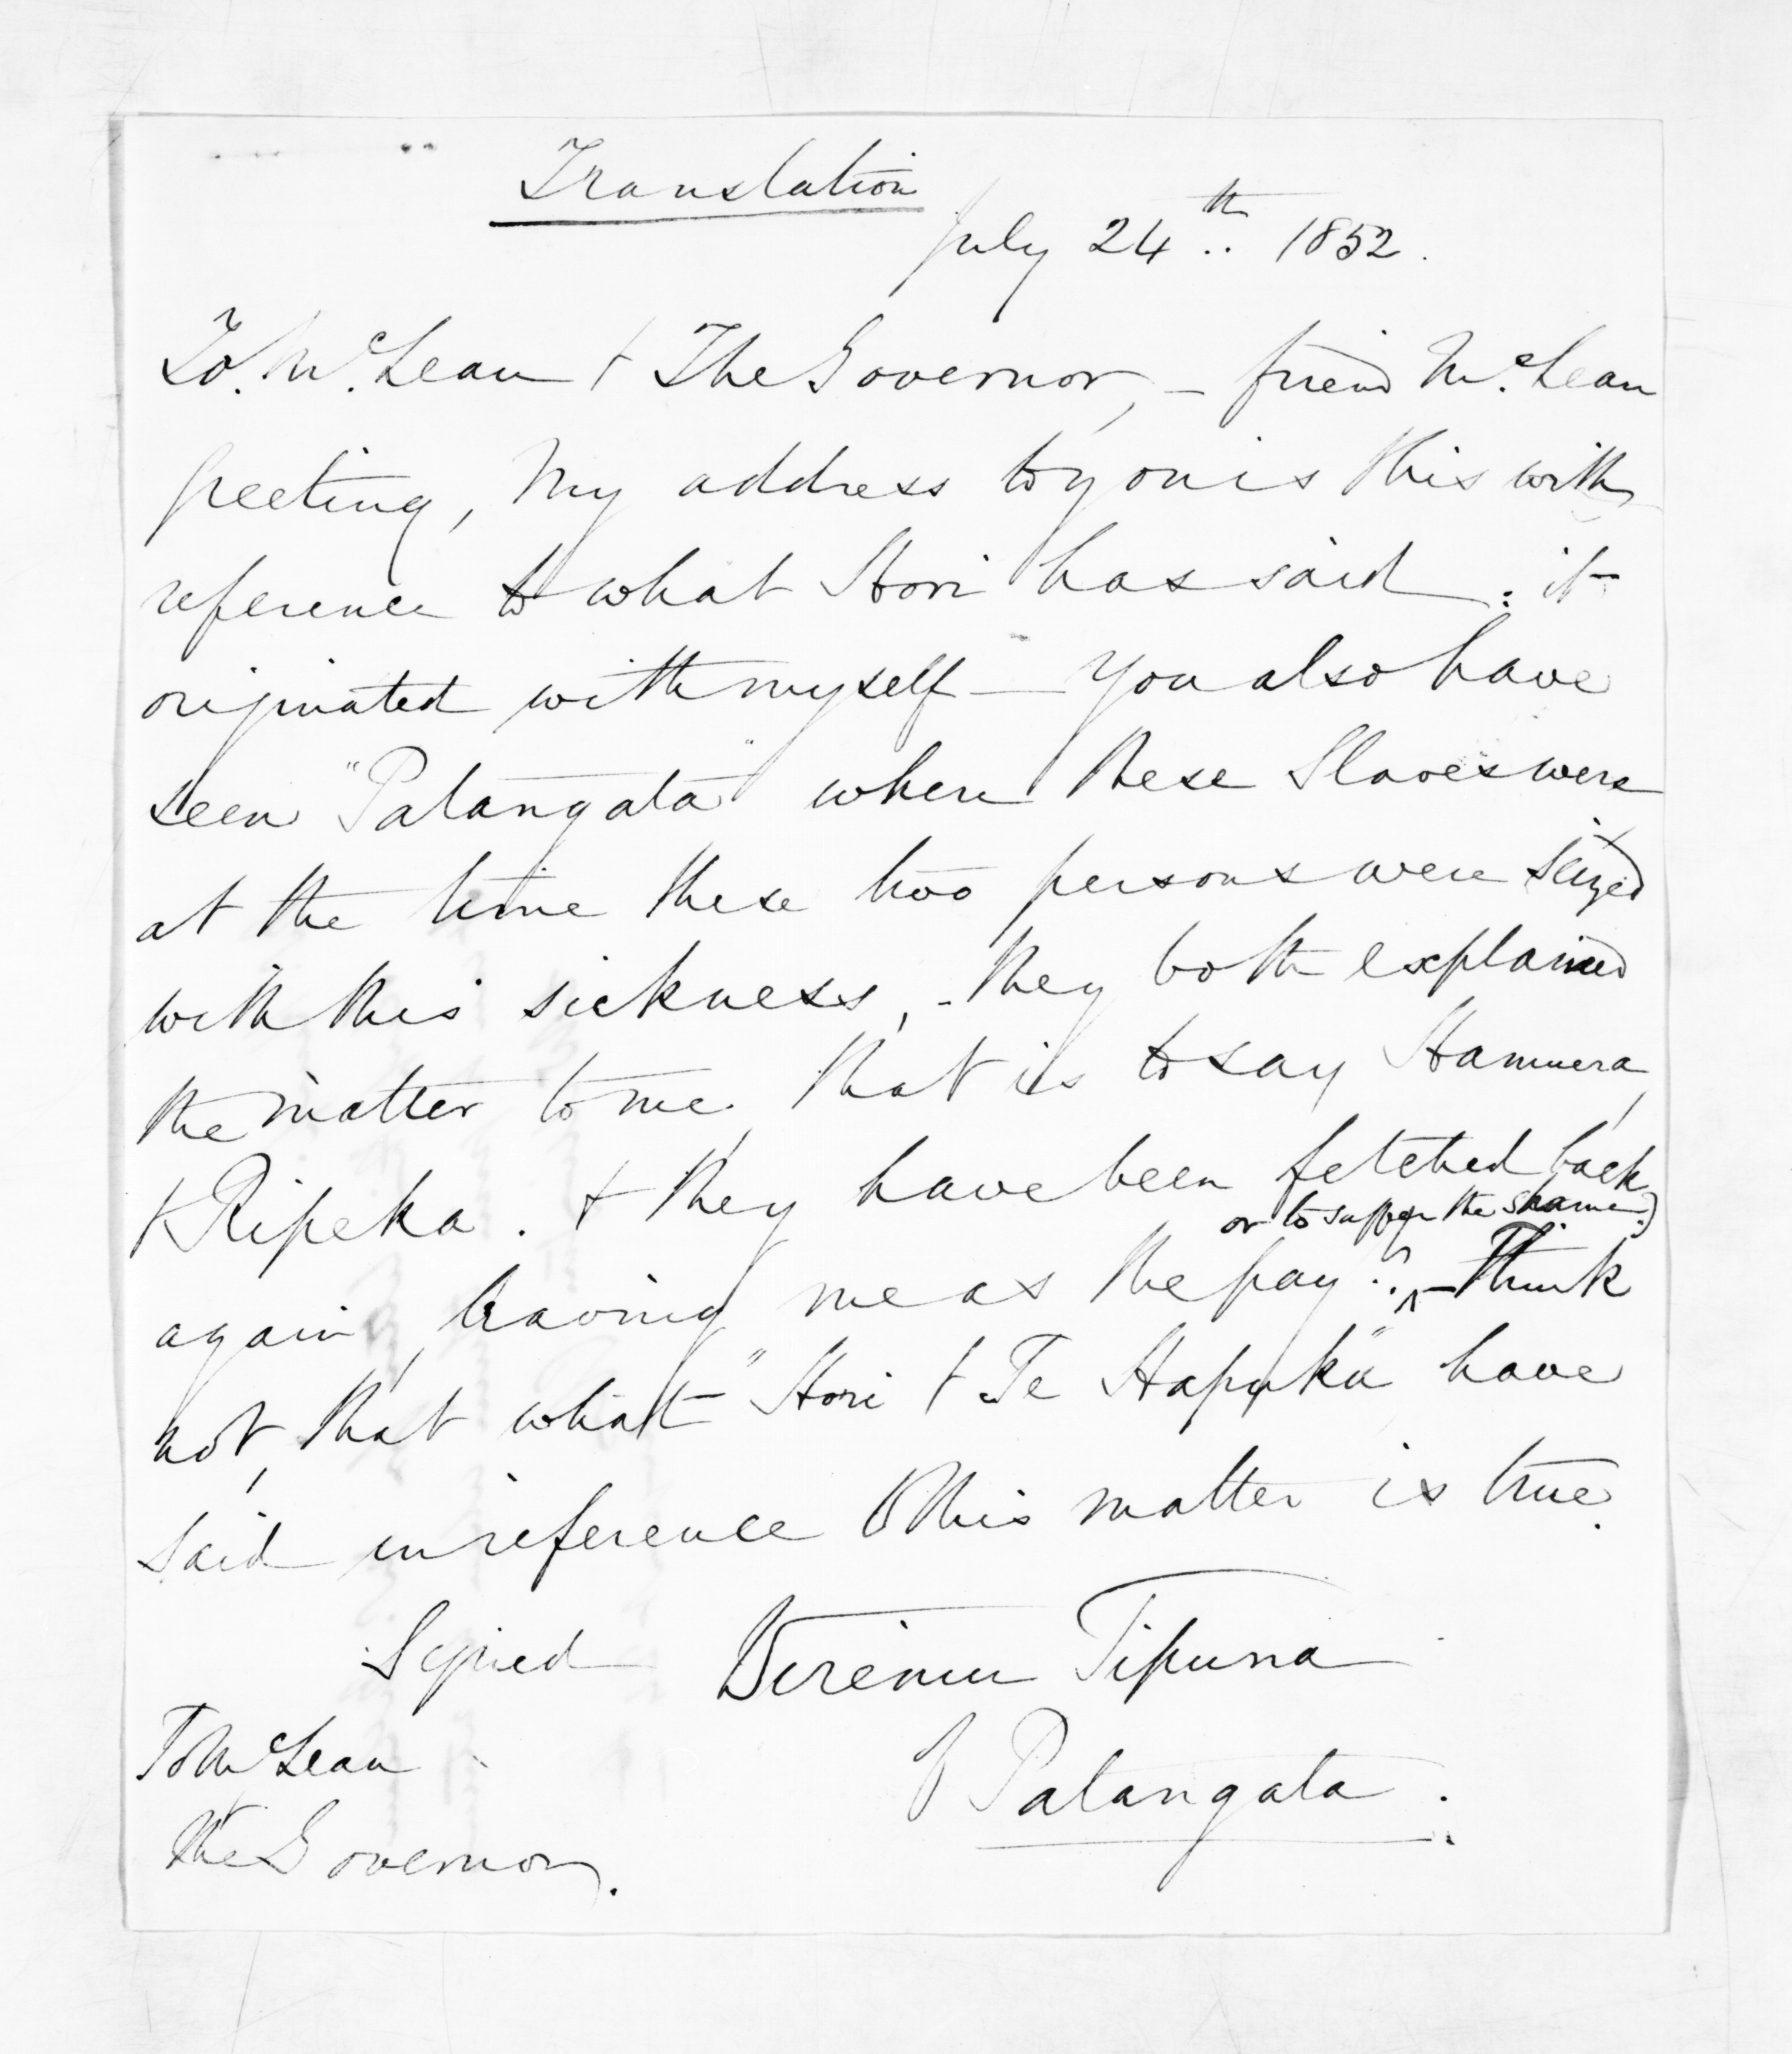 Translation
July 24th 1852.
To. McLean & The Governor, - friend McLean
greeting, My address to you is this with
reference to what Hori has said: it
originated with myself - You also have
seen "Patangata" where these Slaves were
at the time these two persons were seized
with this sickness, - they both explained
the matter to me, that is to say Hamuera,
& Ripeka. & they have been fetched back
or to suffer the shame?)
again, leaving me as the pay? ^ - Think
not, that what "Hori & Te Hapuku" have
said in reference to this matter is true.
Signed Wiremu Tipuna
of Patangata.
To McLean
&
The Governor.